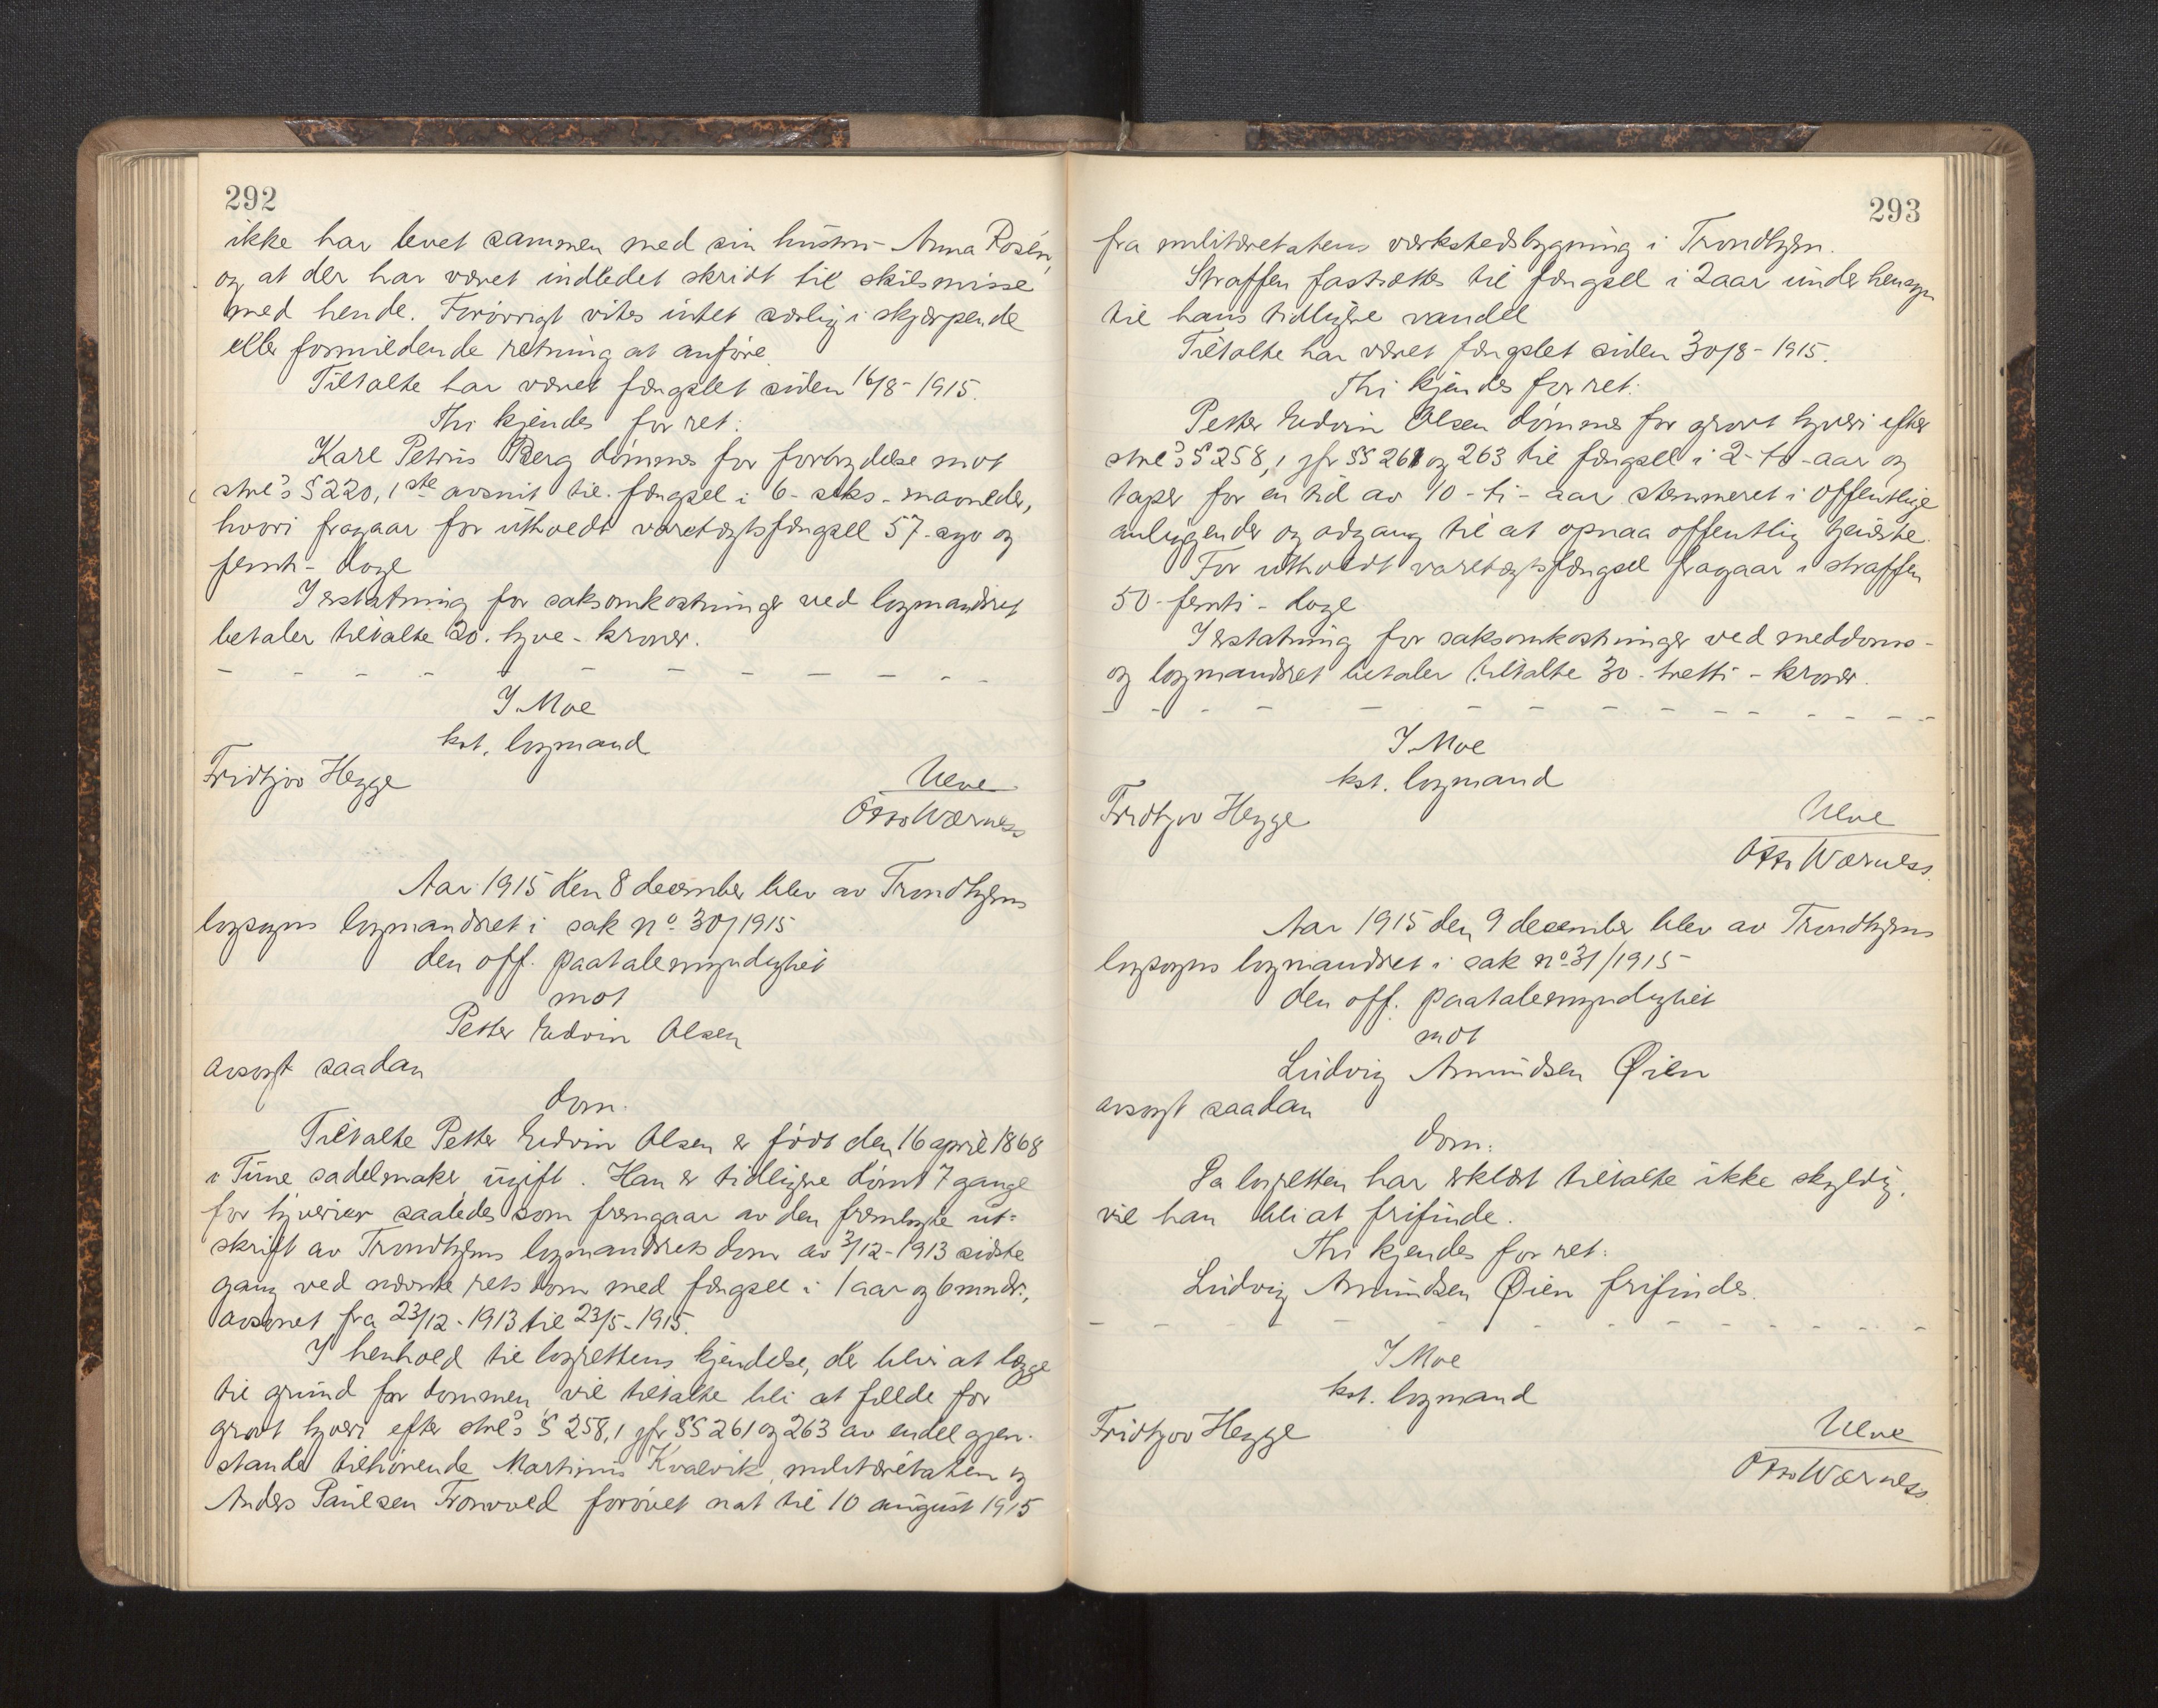 292
ikke har levet sammen med sin hustru Anna Rosén,
og at der har været indledet skridt til skilsmisse
med hende. Forøvrigt vites intet særlig i skjærpende
eller formildende retning at anføre.
Tiltalte har været fængslet siden 16/8-1915.
Thi kjendes for ret:
Karl Petrus Berg dømmes for forbrydelse mot
strl's § 220, 1ste avsnit til fængsel i 6-seks-maaneder,
hvori fragaar for utholdt varetægtsfængsel 57-syv og
femti-dage
I erstatning for saksomkostninger ved lagmandsret
betaler tiltalte 20-tyve-kroner.
I Moe
kst. lagmand
Fridtjov Hegge
Ulve
Otto Wærness
Aar 1915 den 8 december blev av Trondhjems
lagsogns lagmandsret i sak no 30/1915
den off. paatalemyndighet
mot
Petter Edvin Olsen
avsagt saadan
dom.
Tiltalte Petter Edvin Olsen er født den 16 april 1868
i Tune sadelmaker, ugift. Han er tidligere dømt 7 gange
for tyverier saaledes som fremgaar av den fremlagte ut-
skrift av Trondhjems lagmandsrets dom av 3/12-1913 sidste
gang ved nævnte rets dom med fængsel i 1 aar og 6 mndr.,
avsonet fra 23/12-1913 til 23/5-1915.
I henhold til lagrettens kjendelse, der blir at lægge
til grund for dommen, vil tiltalte bli at fælde for
grovt tyveri efter strl's § 258,1 jfr §§ 261 og 263 av endel gjen-
stande tilhørende Martinus Kvalvik, militæretaten og
Anders Paulsen Tronvold forøvet nat til 10 august 1915
293
fra militæretatens verkstedsbygning i Trondhjem.
Straffen fastsættes til fængsel i 2 aar under hensyn
til hans tidligere vandel
Tiltalte har været fængslet siden 30/8-1915.
Thi kjendes for ret:
Petter Edvin Olsen dømmes for grovt tyveri efter
strl's § 258,1 jfr §§ 261 og 263 til fængsel i 2-to-aar og
taper for en tid av 10-ti-aar stemmeret i offentlige
anliggender og adgang til at opnaa offentlig tjeneste.
For utholdt varetægtsfængsel fragaar i straffen
50-femti-dage
I erstatning for saksomkostninger ved meddoms-
og lagmandsret betaler tiltalte 30-tretti-kroner.
I Moe
kst. lagmand
Fridtjov Hegge
Ulve
Otto Wærness.
Aar 1915 den 9 december blev av Trondhjems
lagsogns lagmandsret i sak no 31/1915
den off. paatalemyndighet
mot
Ludvig Amundsen Øien
avsagt saadan
dom:
Da lagretten har erklært tiltalte ikke skyldig,
vil han bli at frifinde.
Thi kjendes for ret:
Ludvig Amundsen Øien frifindes.
I Moe
kst. lagmand
Fridtjov Hegge
Ulve
Otto Wærness.